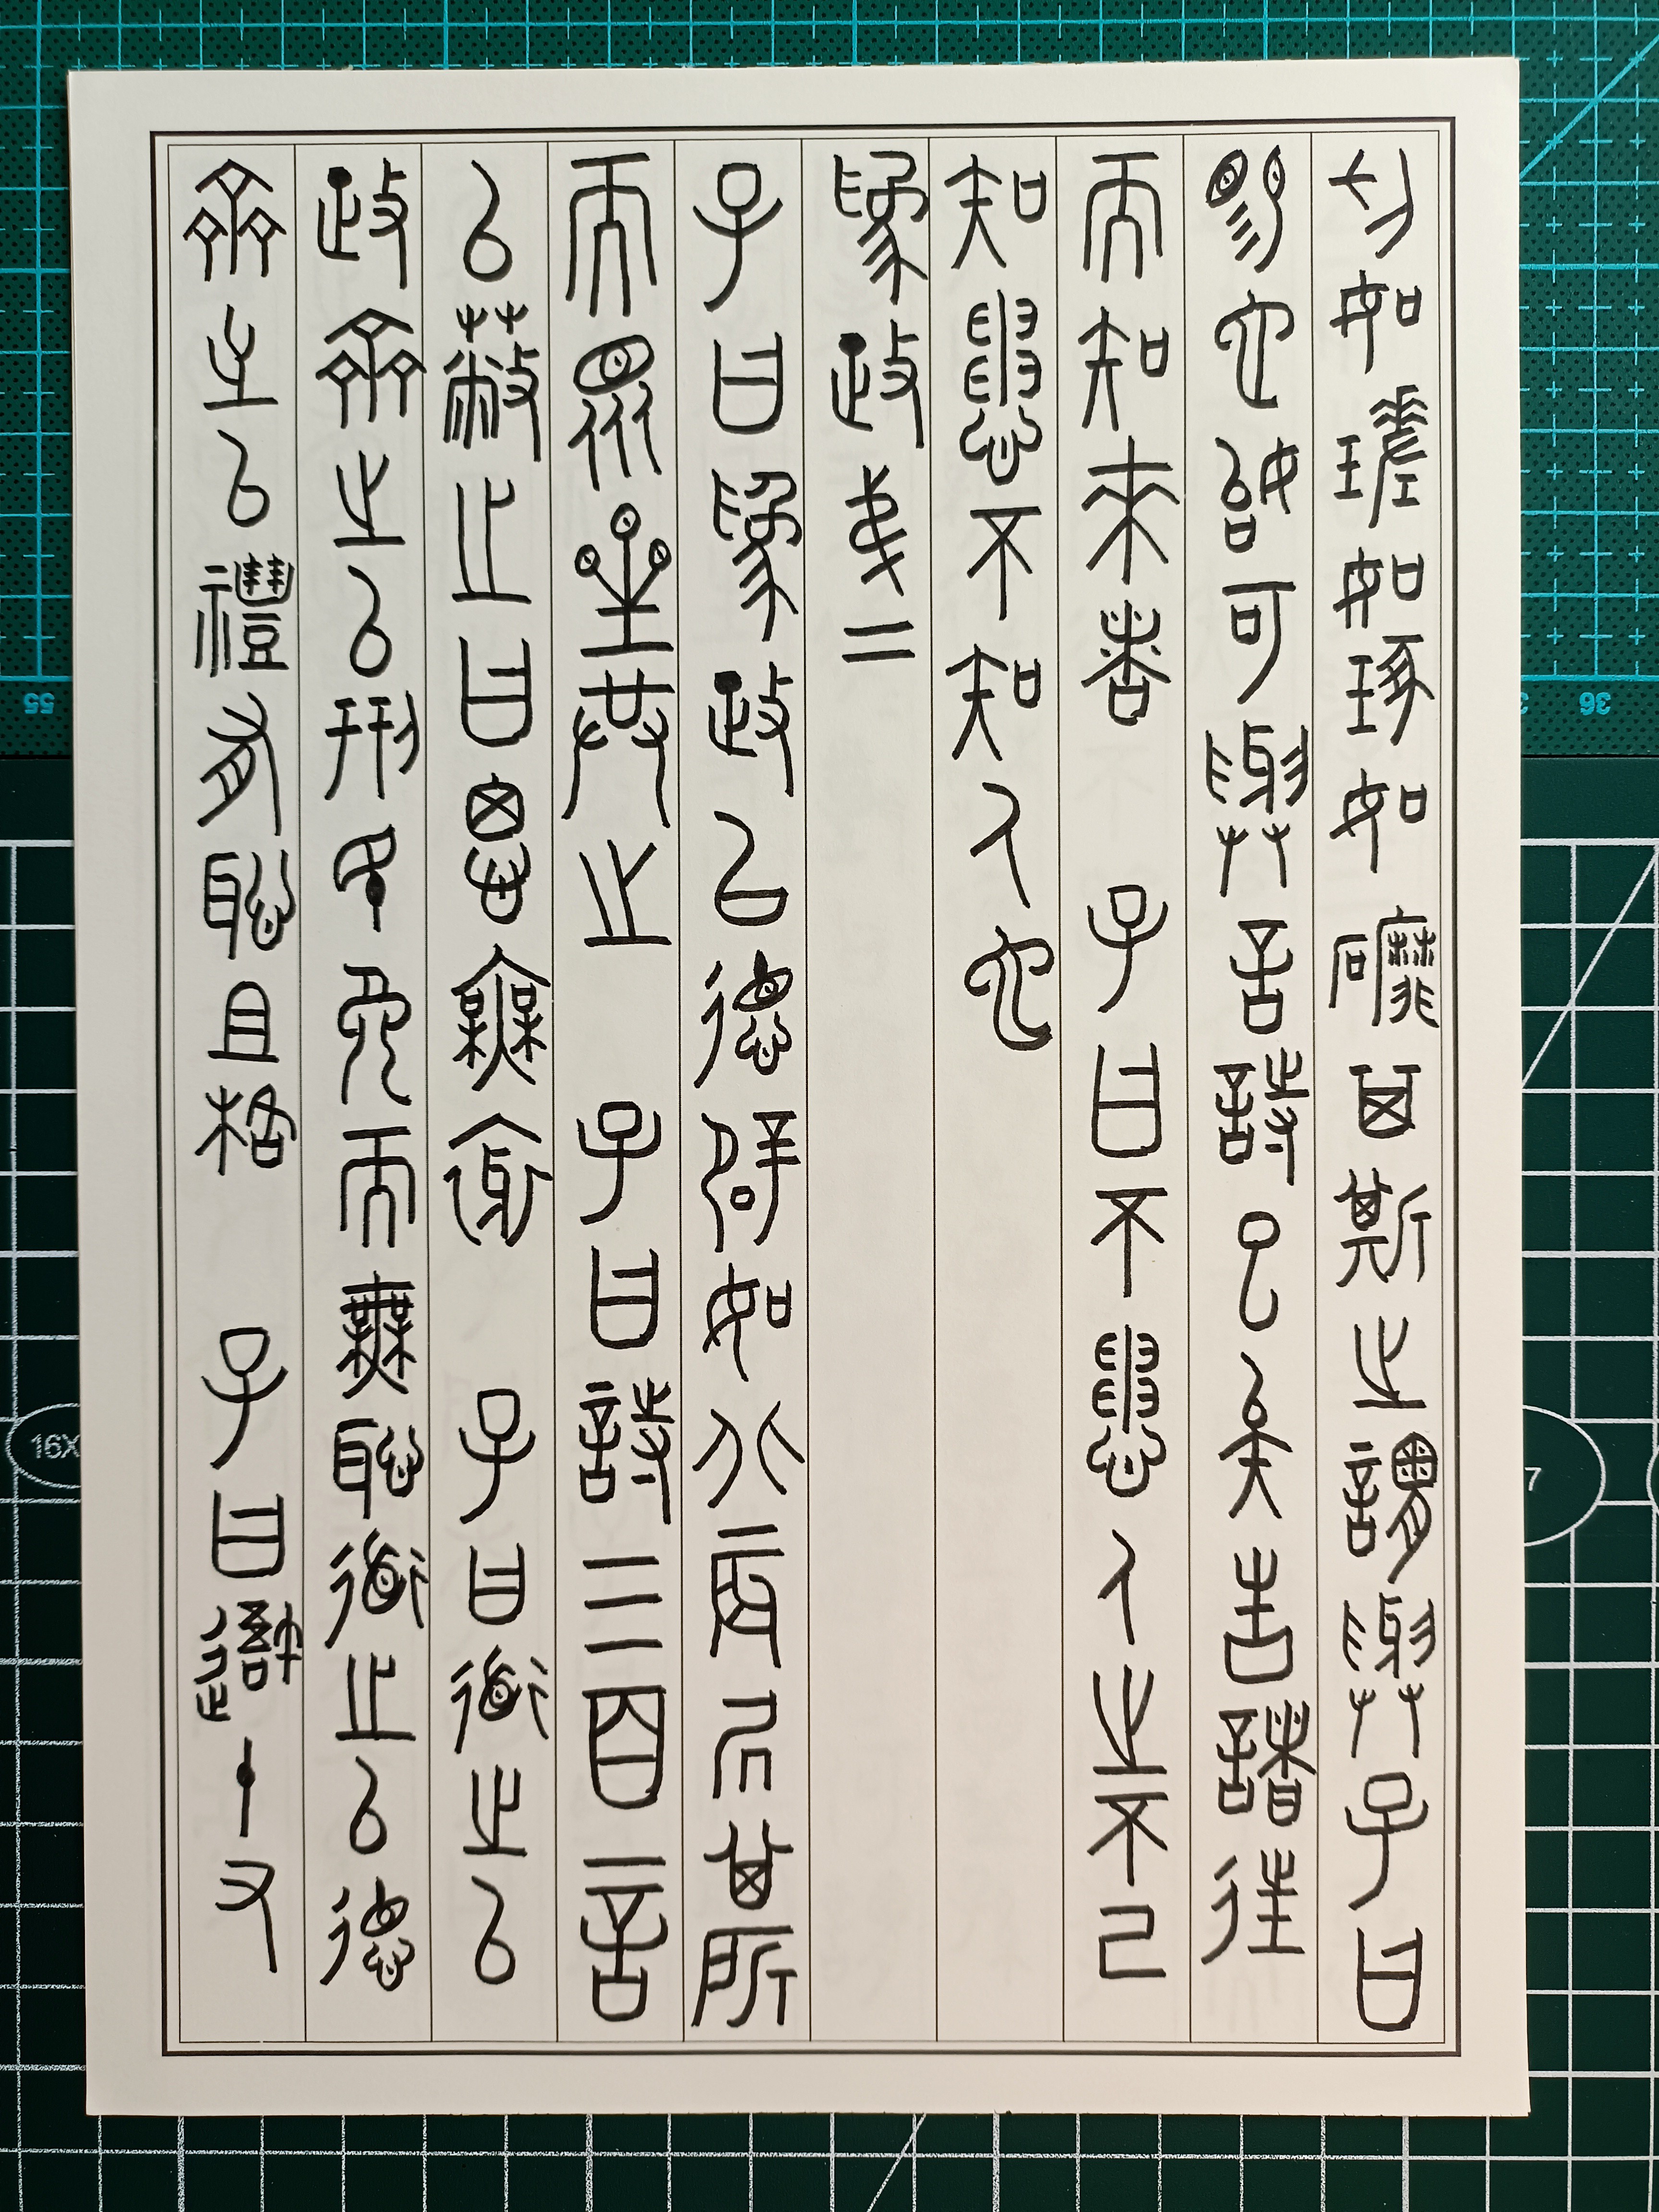 切如瑳如琢如磨其斯之謂與子曰
賜也始可與言詩已矣告諸往
而知來者 子曰不患人之不己
知患不知人也
為政弟二
子曰為政以德譬如北辰居其所
而眾星共之 子曰詩三百一言
以蔽之曰思無邪 子曰道之以
政齊之以刑民免而無恥道之以德
齊之以禮有恥且格 子曰吾十又